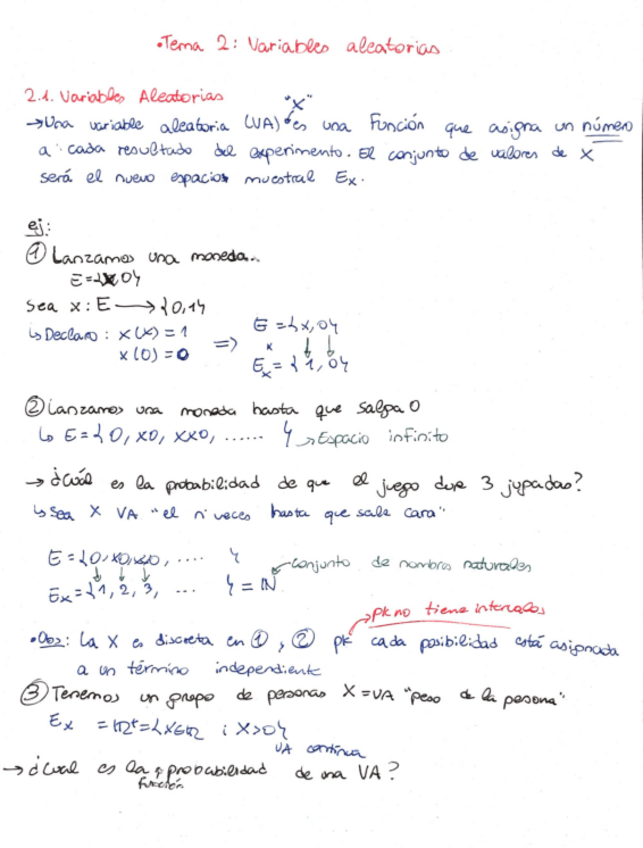 •Tema 2: Variables aleatorias
2.1. Variables Aleatorias
"X"
→Una variable aleatoria (VA) es una Función que asigna un número
a cada resultado del experimento. El conjunto de valores de X
será el nuevo espacio muestral Ex.
ej:
① Lanzamos una moneda..
E={X,O}
Sea x: E ⟶ {0,1}
↳Declaro: x(X) = 1
x(O) = 0
=> E = {X,O}
x ↓ ↓
Ex = {1,0}
② Lanzamos una moneda hasta que salga O
↳ E = {O, XO, XXO, ...... } → Espacio infinito
→ ¿Cuál es la probabilidad de que el juego dure 3 jugadas?
↳ Sea X VA "el nº veces hasta que sale cara"
E = {O, XO, XXO, .... }
↓ ↓ ↓
Ex = {1, 2, 3, ... } = ℕ
conjunto de nombros naturales
pk no tiene intervalos
•Obs: La X es discreta en ①, ② pk cada posibilidad está asignada
a un término independiente
③ Tenemos un grupo de personas X = VA "peso de la pesona"
Ex = ℝ⁺ = {X∈ℝ ; X>0}
VA continua
→ ¿Cual es la probabilidad de una VA?
función